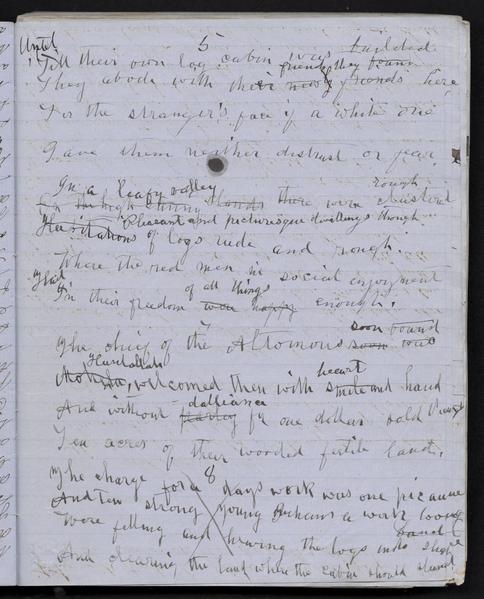 5
Until
Till their own log cabin was finished
friends they found
They abode with their new friends here
For the stranger's face if a white one
Gave them neither distrust or fear.
6
In a leafy valley rough
stands there were clustered
Pleasant and picturesque dwellings though
Habitations of logs rude and rough.
Where the red men in social enjoyment
Had of all things
In their freedom were happy enough.
7
The chief of the Altomons soon found
soon
welcomed them with heart and hand
dalliance
And without parley for one dollar sold
Ten acres of their wooded fertile land.
8
The charge for a days work was one picaune
And ten strong young Indians a work loving
band
Were felling and hewing the logs into shape
And clearing the land where the cabin should stand